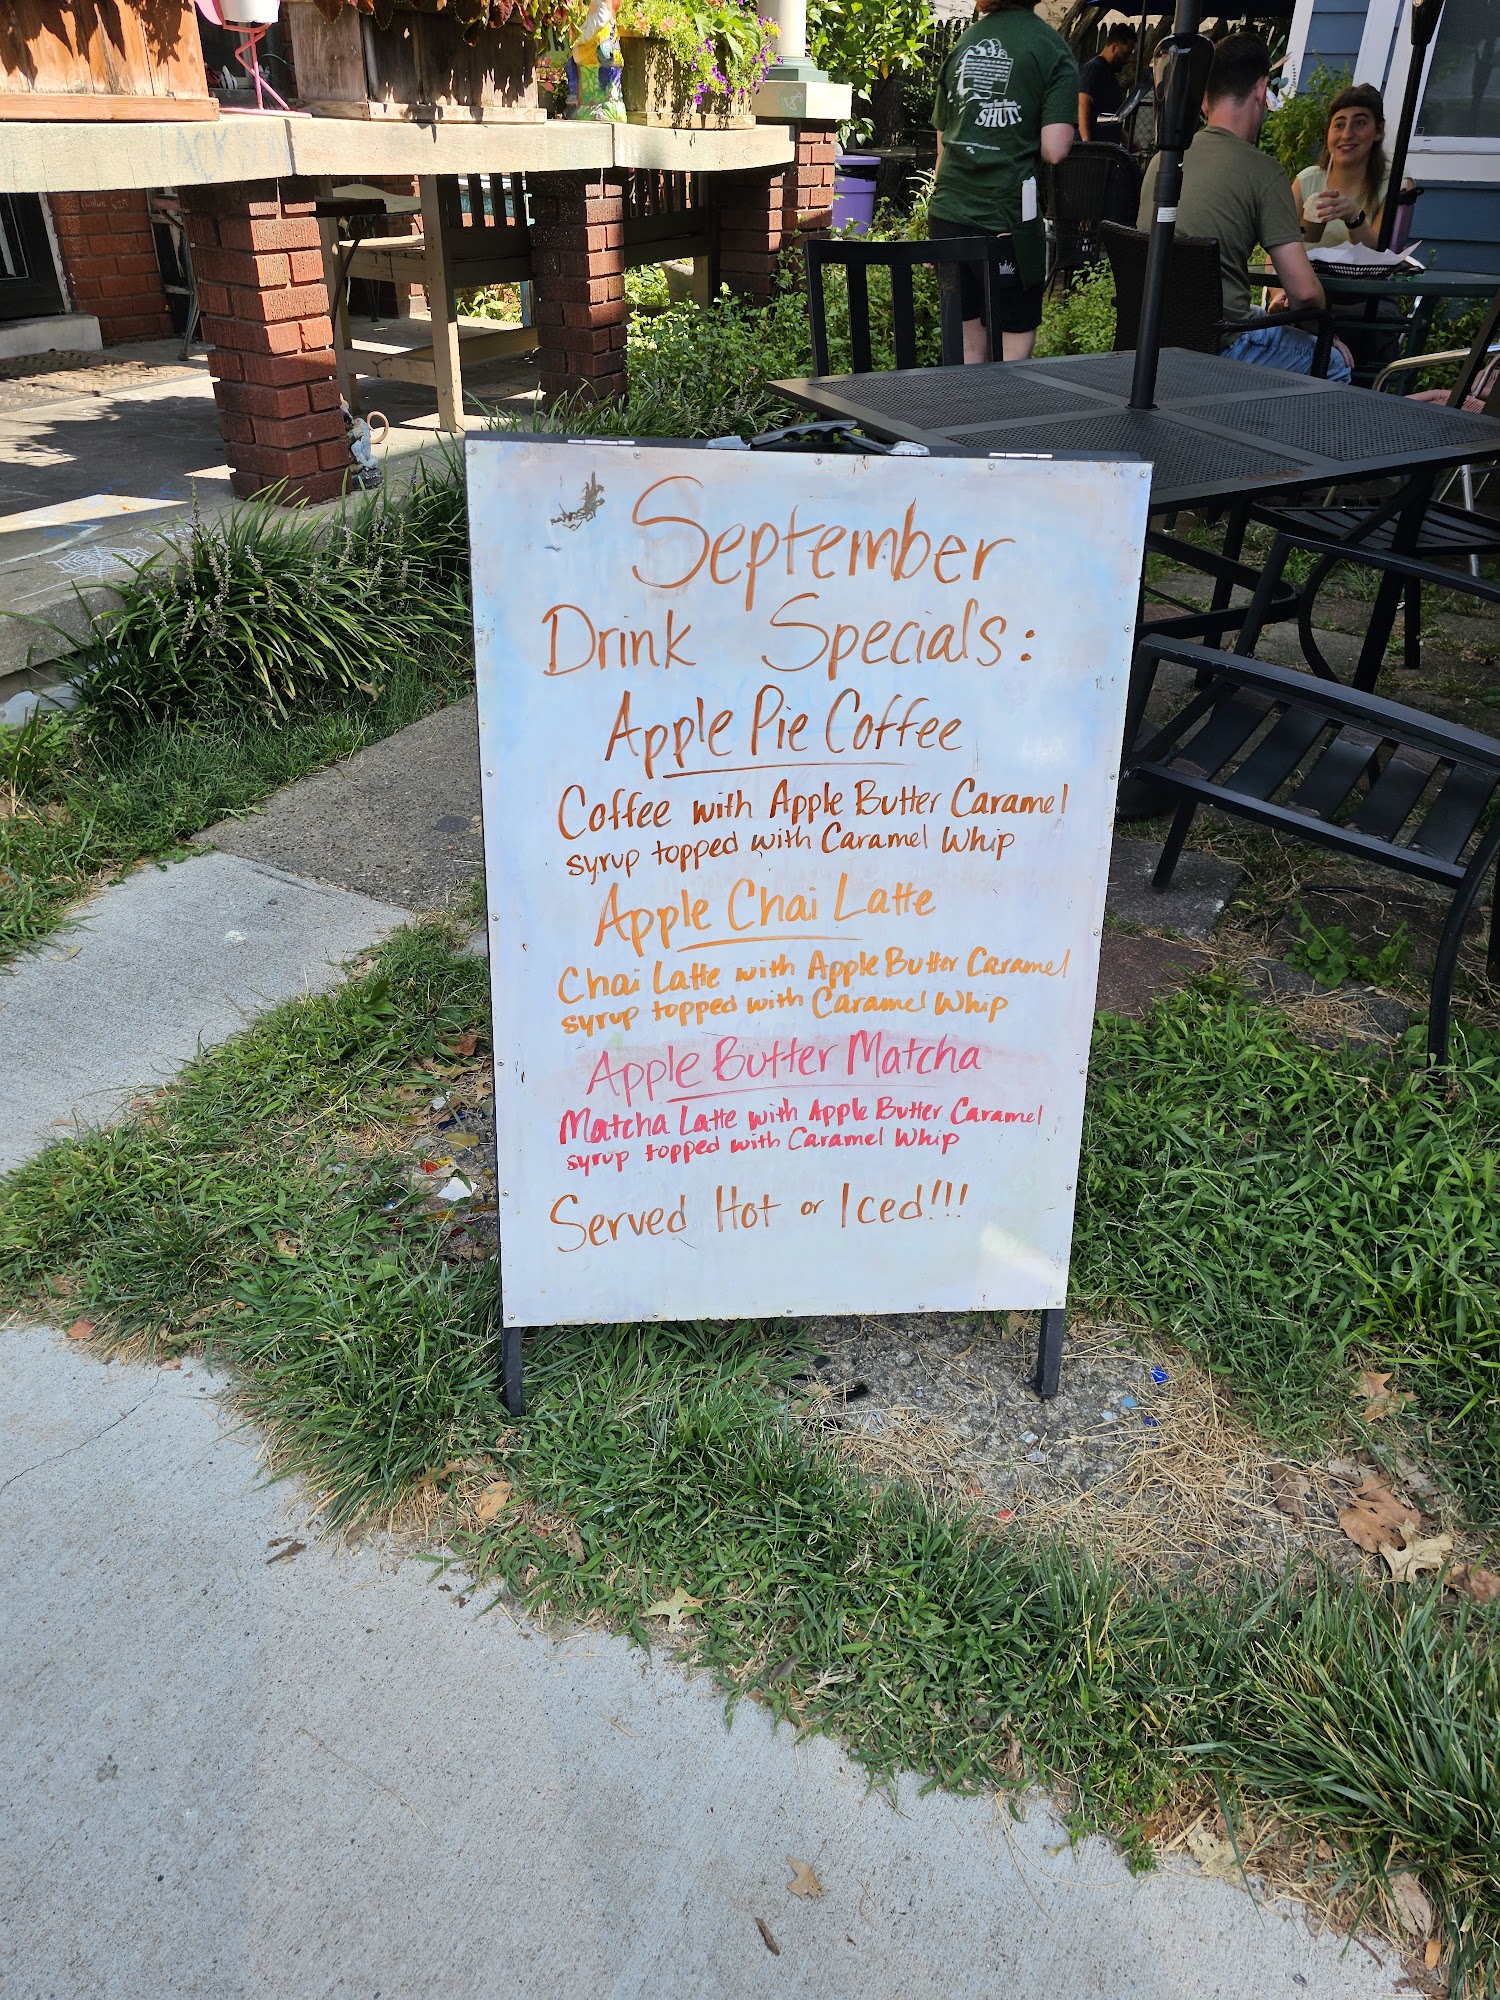 SHUT!
September
Drink Specials:
Apple Pie Coffee
Coffee with Apple Butter Caramel
syrup topped with Caramel Whip
Apple Chai Latte
Chai Latte with Apple Butter Caramel
syrup topped with Caramel Whip
Apple Butter Matcha
Matcha Latte with Apple Butter Caramel
syrup topped with Caramel Whip
Served Hot or Iced!!!